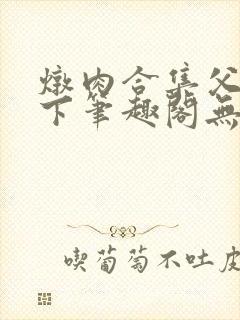 燉肉合集父
下筆趣閣無
喫葡萄不吐皮